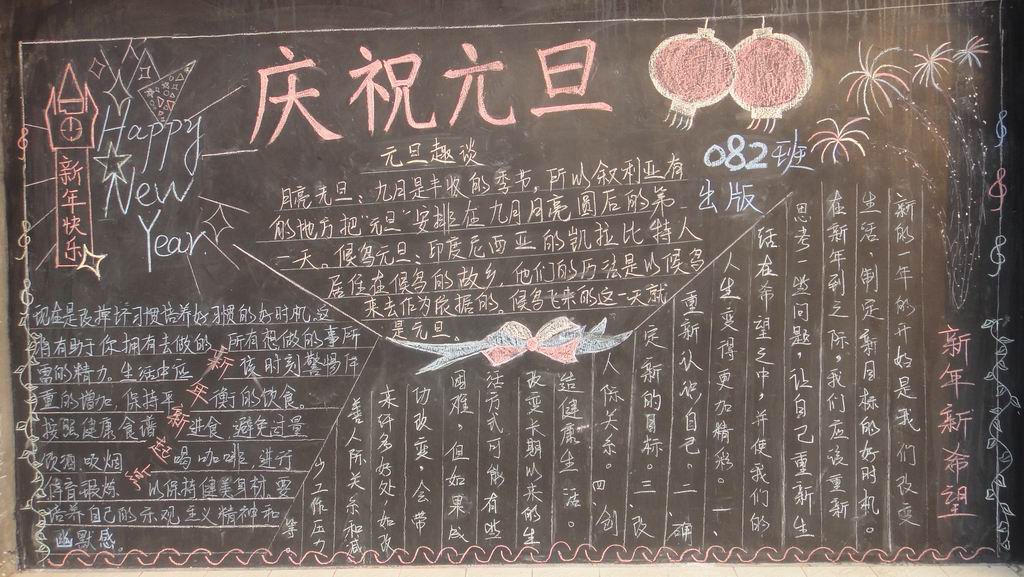 庆祝元旦
新年快乐
Happy
New
Year
082班
出版
元旦趣谈
月亮元旦:九月是丰收的季节,所以叙利亚有
的地方把"元旦"安排在九月月亮圆后的第
一天。候鸟元旦:印度尼西亚的凯拉比特人
居住在候鸟的故乡,他们的历法是以候鸟
来去作为依据的。候鸟飞来的这一天就
是元旦。
现在是改掉坏习惯培养好习惯的好时机。这
将有助于你拥有去做的 所有想做的事所
需的精力。生活中应 该时刻警惕体
重的增加,保持平 衡的饮食。
按照健康食谱 进食,避免过量
饮酒、吸烟 喝咖啡,进行
体育锻炼 以保持健美身材,要
培养自己的乐观主义精神和
幽默感。
新年新起
新的一年的开始是我们改变
生活、制定新目标的好时机。
在新年到之际,我们应该重新
思考一些问题,让自己重新生
活在希望之中,并使我们的
人生变得更加精彩。一、
重新认识自己。二、确
定新的目标。三、改
人际关系。四、创
造健康生活。
改变长期以来的生
活方式可能有些
困难,但如果成
功改变,会带
来许多好处,如改
善人际关系和减
少工作压力
等
新年新希望